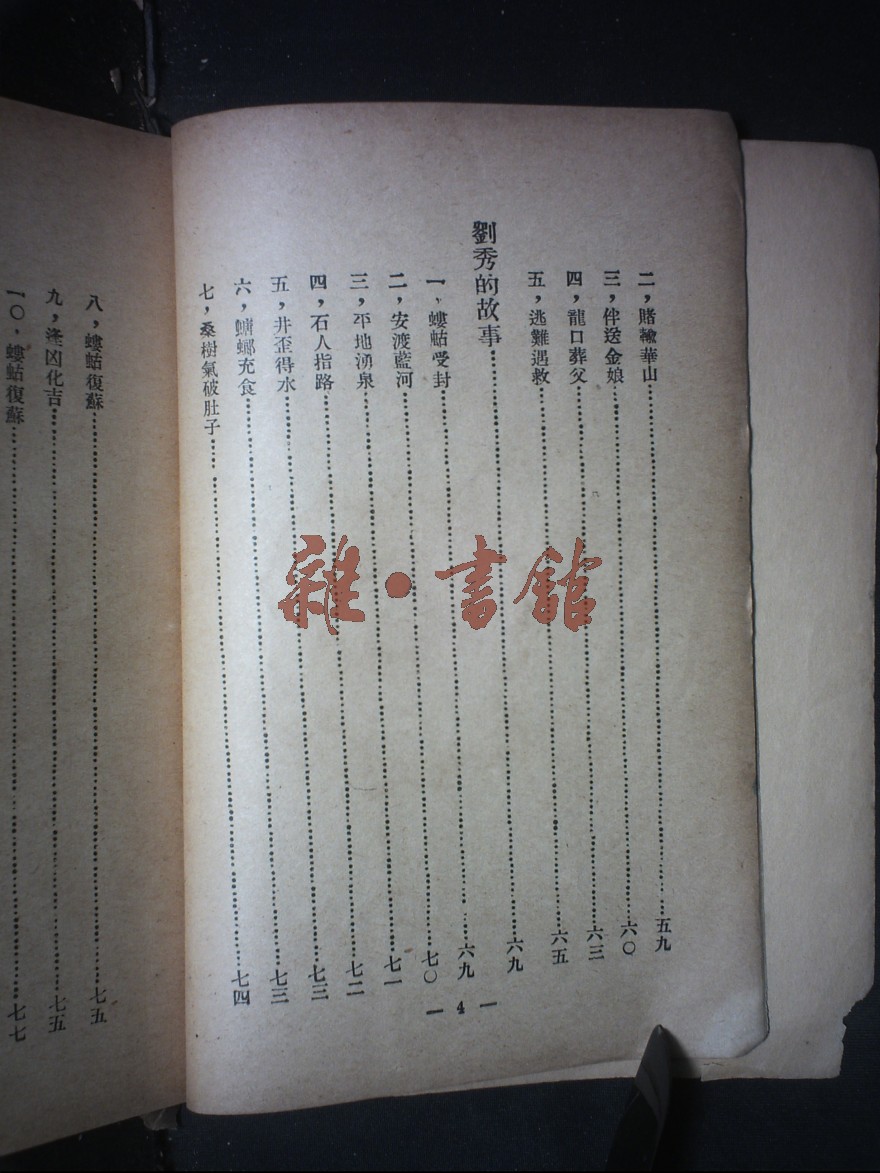 二，賭輸華山……五九
三，伴送金娘……六〇
四，龍口葬父……六三
五，逃難遇救……六五
劉秀的故事……六九
一，螻蛄受封……六九
二，安渡藍河……七〇
三，平地湧泉……七一
四，石人指路……七二
五，井歪得水……七三
六，螂充食……七三
七，桑樹氣破肚子……七四
— 4 —
八，螻蛄復蘇……七五
九，逢凶化吉……七五
一〇，螻蛄復蘇……七七
雜·書館